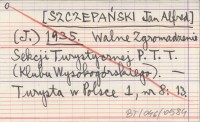 [SZCZEPAŃSKI Jan Alfred]
(J.) 1935. Walne Zgromadzenie
Sekcji Turystycznej P.T.T.
(Klubu Wysokogórskiego). —
Turysta w Polsce 1, nr 8: 13.